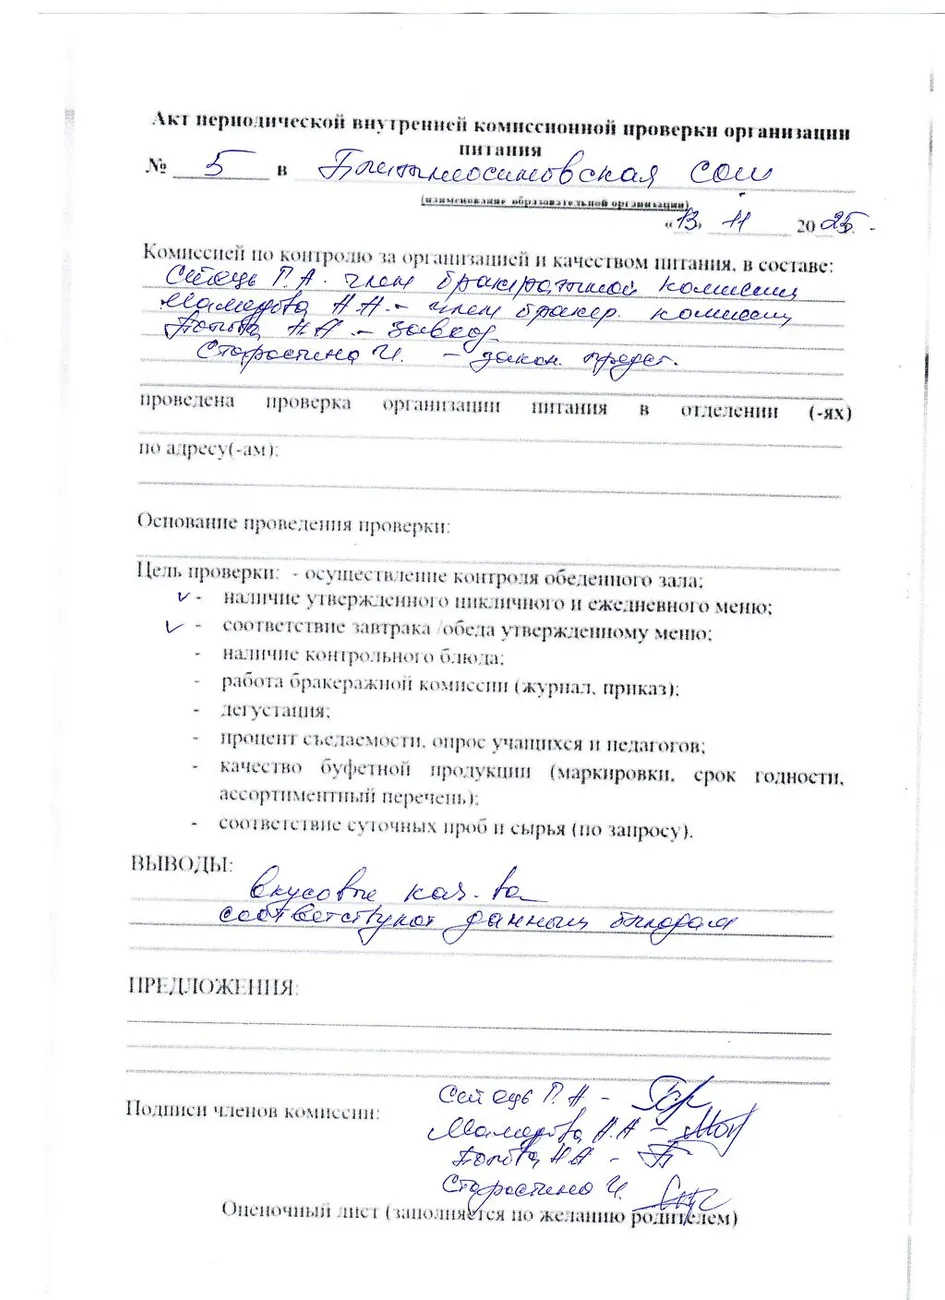 Акт периодической внутренней комиссионной проверки организации
питания
№ 5 в СОШ
(наименование образовательной организации)
«13» 11 2025.
Комиссией по контролю за организацией и качеством питания, в составе:
Г.А. член бракеражной комиссии
Мамедова А.А. – член бракер. комиссии
Попова Н.А – завхоз
Старостина И. – закон. предст.
проведена проверка организации питания в отделении (-ях)
по адресу(-ам):
Основание проведения проверки:
Цель проверки: - осуществление контроля обеденного зала;
✓ - наличие утвержденного цикличного и ежедневного меню;
✓ - соответствие завтрака /обеда утвержденному меню;
- наличие контрольного блюда;
- работа бракеражной комиссии (журнал, приказ);
- дегустация;
- процент съедаемости, опрос учащихся и педагогов;
- качество буфетной продукции (маркировки, срок годности,
ассортиментный перечень);
- соответствие суточных проб и сырья (по запросу).
ВЫВОДЫ:
Вкусовые кач-ва
соответствуют данным блюдам
ПРЕДЛОЖЕНИЯ:
Подписи членов комиссии:
Г.А –
Мамедова А.А –
Попова Н.А –
Старостина И.
Оценочный лист (заполняется по желанию родителем)